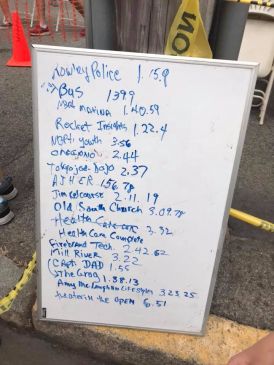 NO
Rowley Police 1.15.9
Bus 1399
Marina 1.40.59
Rocket Insights 1.22.4
youth 3.56
2.44
Tokyo Joe Dojo 2.37
ASHER 156.78
Jim Delcourse 2.11.19
Old South Church 3.09.78
Health Care 3.32
Health Care Complete
Firebrand Tech. 2.42.62
Mill River 3.22
Capt. DAD 1.55
The Grog 1.38.13
Amy McLaughlin Lifestyles 3.23.25
theater in the OPEN 6.51